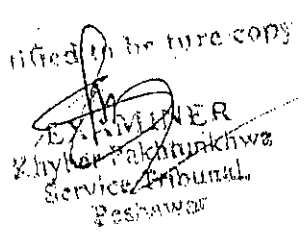 tified to be ture copy
EXAMINER
Khyber Pakhtunkhwa
Service Tribunal,
Peshawar